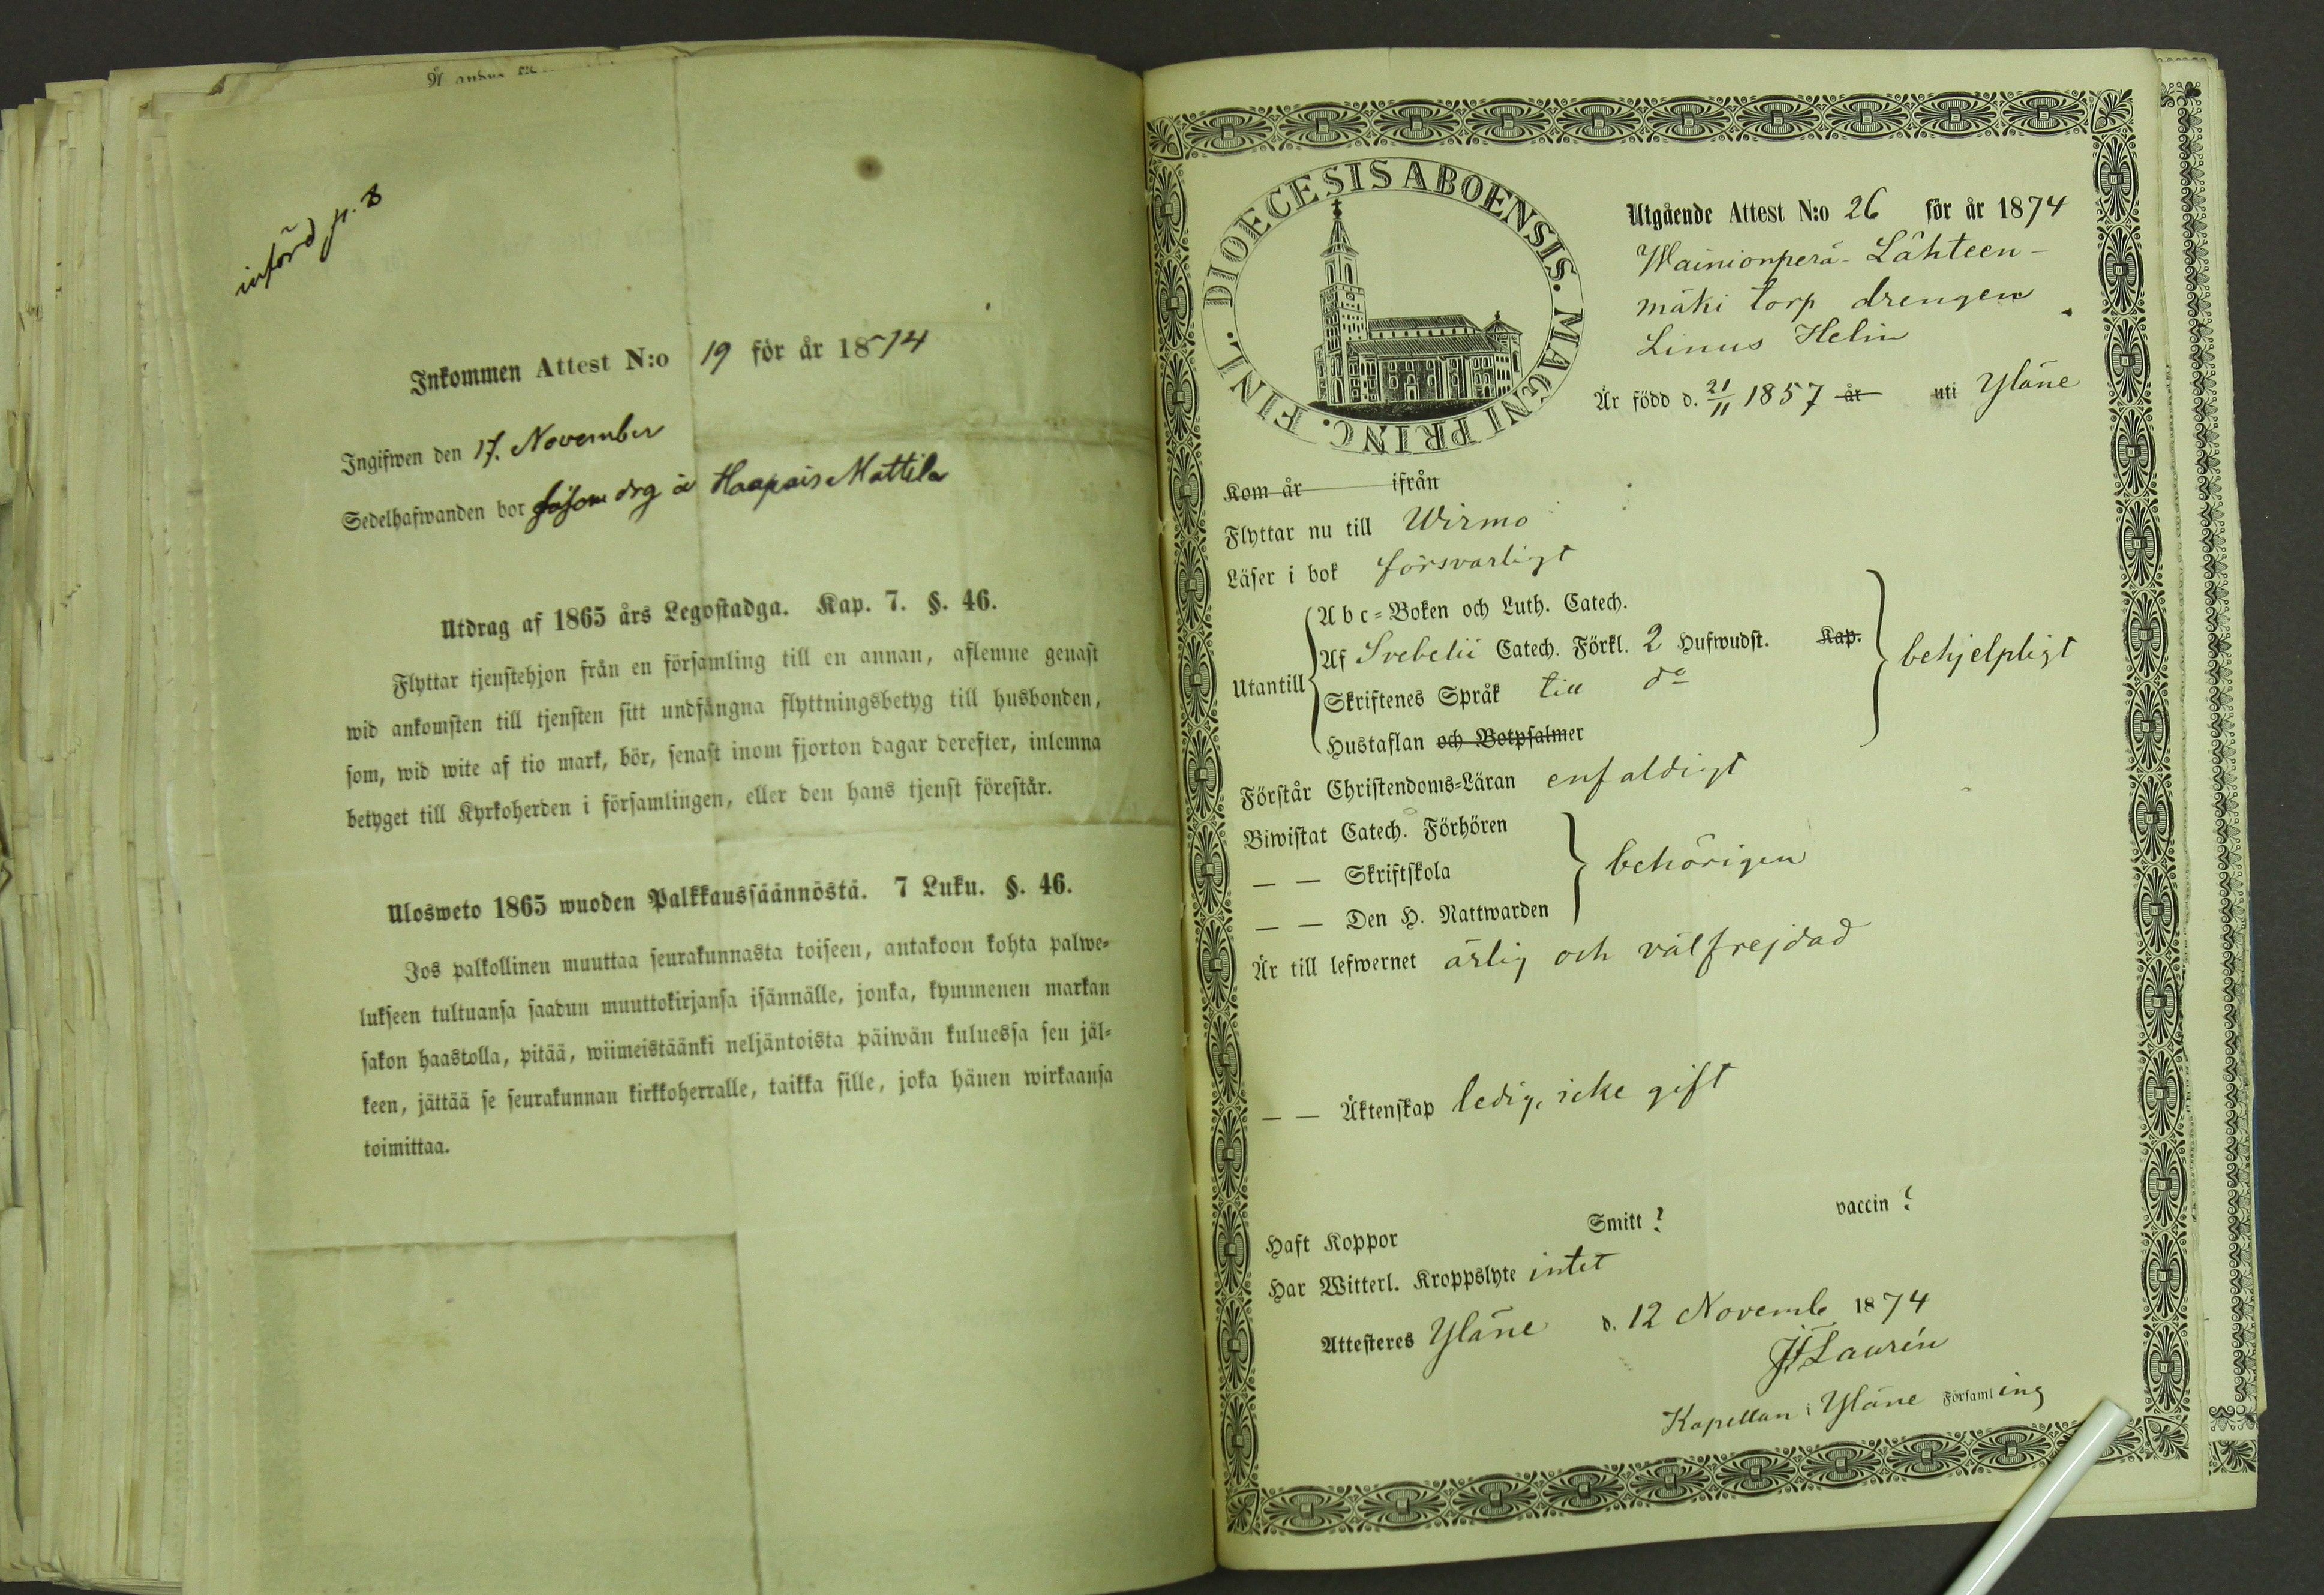 införd p. 8
Inkommen Attest N:o 19 för år 1874
Ingifwen den 17. November
Sedelhafwanden bor såsom drg å Haapais Mattila
Utdrag af 1865 års Legostadga. Kap. 7. §. 46.
Flyttar tjenstehjon från en församling till en annan, aflemne genast
wid ankomsten till tjensten sitt undfångna flyttningsbetyg till husbonden,
som, wid wite af tio mark, bör, senast inom fjorton dagar derefter, inlemna
betyget till Kyrkoherden i församlingen, eller den hans tjenst förestår.
Ulosweto 1865 wuoden Palkkaussäännöstä. 7 Luku. §. 46.
Jos palkollinen muuttaa seurakunnasta toiseen, antakoon kohta palwe-
lukseen tultuansa saadun muuttokirjansa isännälle, jonka, kymmenen markan
sakon haastolla, pitää, wiimeistäänki neljäntoista päiwän kuluessa sen jäl-
keen, jättää se seurakunnan kirkkoherralle, taikka sille, joka hänen wirkaansa
toimittaa.
DIOECESIS ABOENSIS. MAGNI PRINC. FINL.
Utgående Attest N:o 26 för år 1874
Wainionperä- Lähteen-
mäki torp drengen
Linus Helin
Är född d. 21/11 1857 år uti Yläne
Kom år ifrån
Flyttar nu till Wirmo
Läser i bok försvarligt
Utantill
Abc-Boken och Luth. Catech.
Af Svebelii Catech. Förkl. 2 Hufwudst. Kap.
Skriftenes Språk till do
Hustaflan och Botpsalmer
behjelpligt
Förstår Christendoms-Läran enfaldigt
Biwistat Catech. Förhören
— — Skriftskola
— — Den H. Nattwarden
behörigen
Är till lefwernet ärlig och välfrejdad
— — Äktenskap ledig, icke gift
Haft Koppor Smitt? vaccin?
Har Witterl. Kroppslyte intet
Attesteres Yläne d. 12 Novemb 1874
Laurén
Kapellan i Yläne Församling